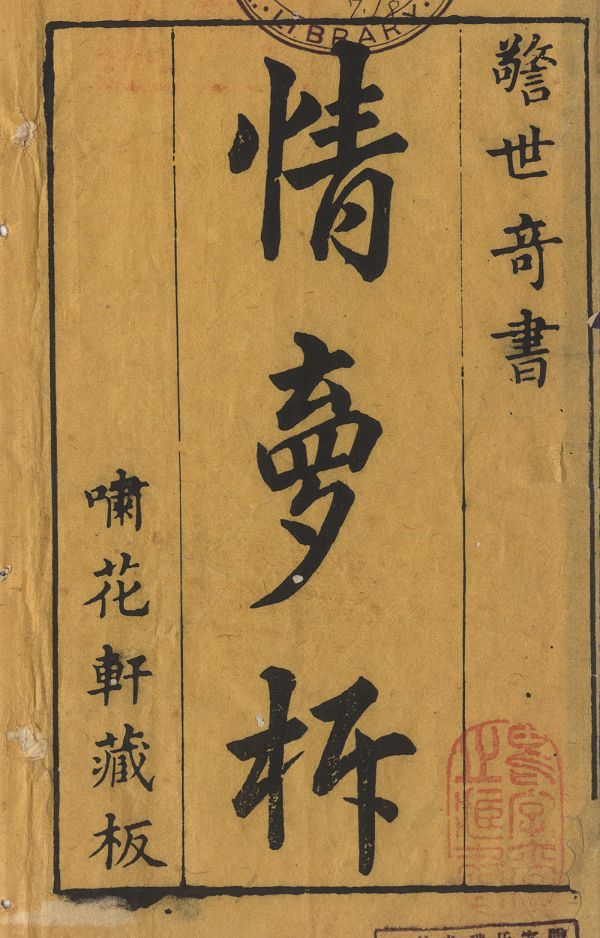 警世奇書
情夢柝
嘯花軒藏板
LIBRARY
7.18